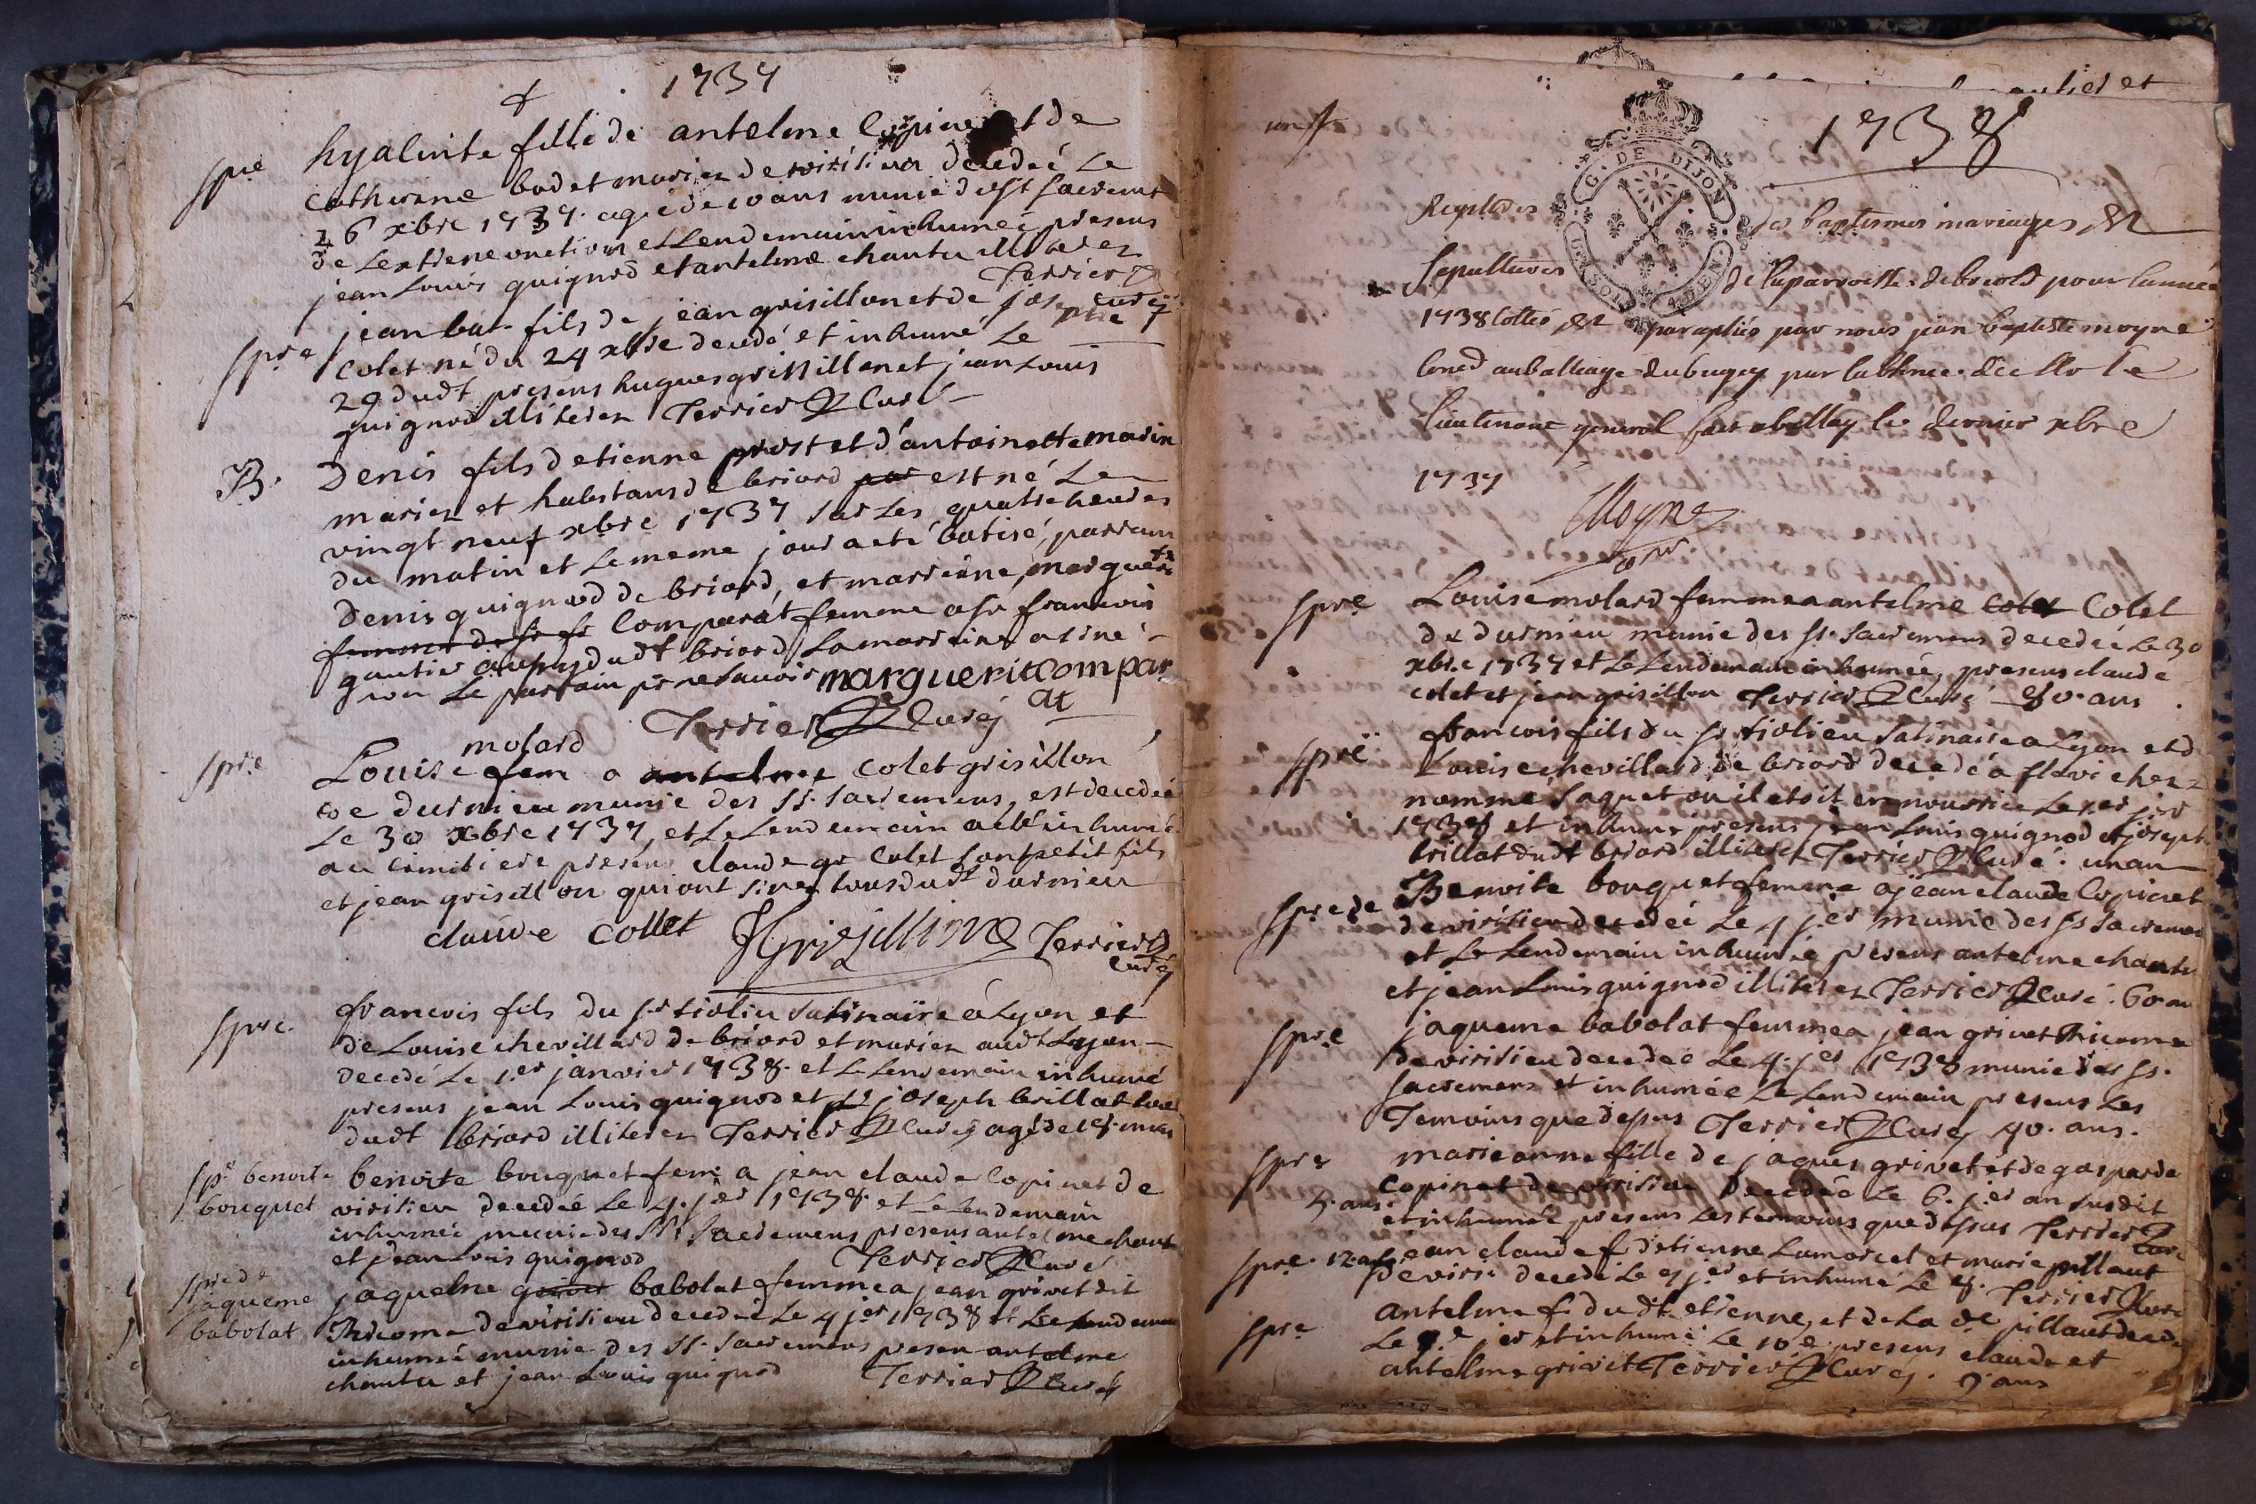 1737
spre
hyacinte fille de antelme Copinet et de
catherine bodet mariez de virisieu decedeé Le
26 xbre 1737. agée de 10 ans munie d
de Lextreme onction et Lendemain inhumeé presens
jean Louis guignod et antelme chantu illiterez
Terrier curé
spre
jean bat. fils de jean grisillon et de josephte
Colet né du 24 xbre decedé et inhumé Le
29 dudt. presens hugues grisillon et jean Louis
guignod illiterez Terrier Curé
B.
Denis fils d etienne prost et d'antoinette marin
mariez et habitans de briord par est né Le
vingt neuf xbre 1737 sur Les quatre heures
du matin et Le meme jour a eté batisé, parrain
Denis guignod de briord, et marreine, marguerite
Comparat femme a sr francois
gautier dudt briord La marreine a siné
non Le parrain pr ne savoir marguerit compar
at
Terrier Curé
spre
molard
Louise fem a antelme colet grisillon
de durnieu munie des SS. sacremens, est decedeé
Le 30 xbre 1737, et Le Lendemain a eté inhumé
au cimitiere presens claude gr Colet son petit fils
et jean grisillon qui ont sinez tous dudt durnieu
claude collet JGrizillion Terrier
curé
spre.
francois fils du sr tiolieu satinaire a Lyon et
de Louise chevillard de briord et mariez audt Lyon
decedé Le 1.er janvier 1738. et Le Lendemain inhumé
presens jean Louis guignod et joseph brillat
dudt briord illiterez Terrier Curé agé de
spre benoite
bouquet
benoite bouquet fem. a jean claude Copinet de
virisieu decedeé Le 4. jer 1738. et Le Lendemain
inhumeé munie des SS. Sacremens presens antelme chant
et jean Louis guignod Terrier Curé
spre de
jaqueme
babolat
jaquelne babolat femme a jean grivet dit
Thicoma de virisieu decedeé Le 4 jer 1738 et Le Lendemain
inhumeé munie des SS. Sacremens presen antelme
chantu et jean Louis guignod Terrier Curé
1738
G. DE DIJON
Registre des baptesmes mariages, et
Sepultures de la parroisse de briord pour lannée
1738 Cottés, et paraphés par nous jean baptiste moyne
Conser au balliage du bugey pour labsence de Mr Le
Lieutenant general fait a belley le dernier xbre
1737
Moyne
spre
Louise molard femme a antelme colet Colet
de durnieu munie des SS. sacremens decedeé Le 30
xbre 1737 et Le Lendemain inhumée, presens claude
colet et jean grisillon Terrier Curé 80. ans
spre
francois fils du sr tiolieu satinaire a Lyon et d
Louise chevillard de briord decedé a flevi chez
nommé Saquet ou il etoit en nourrice Le 1.er jer
1738 et inhumé presens jean Louis guignod et joseph
brillat dudt briord illiterez Terrier Curé. un an
spre de
Benoite bouquet femme a jean claude Copinet
de virisieu decedeé Le 4 jer munie des SS sacremen
et Le Lendemain inhumeé presens antelme chantu
et jean Louis guignod illiterez Terrier Curé. 60 an
spre
jaqueme babolat femme a jean grivet thicoma
de virisieu decedeé Le 4. jer 1738 munie des SS.
sacremens et inhumée Le Lendemain presens Les
Temoins que depus Terrier Curé 40. ans.
spre
5. ans
marieanne fille de jaques grivet et de gasparde
copinet de virisieu decedée Le 6. jer an susdit
et inhumée presens Les temoins que depus Terrier Curé
spre. 12 ans
jean claude f. d etienne Lamorcel et marie pillaut
de virisi decedé Le 7 jer et inhumé Le 8. Terrier Curé
spre
antelme f. dudt. etienne, et de La de. pillaut decedé
Le 9.e jer et inhumé Le 10e. presens claude et
antelme grivet Terrier Curé. 7 ans